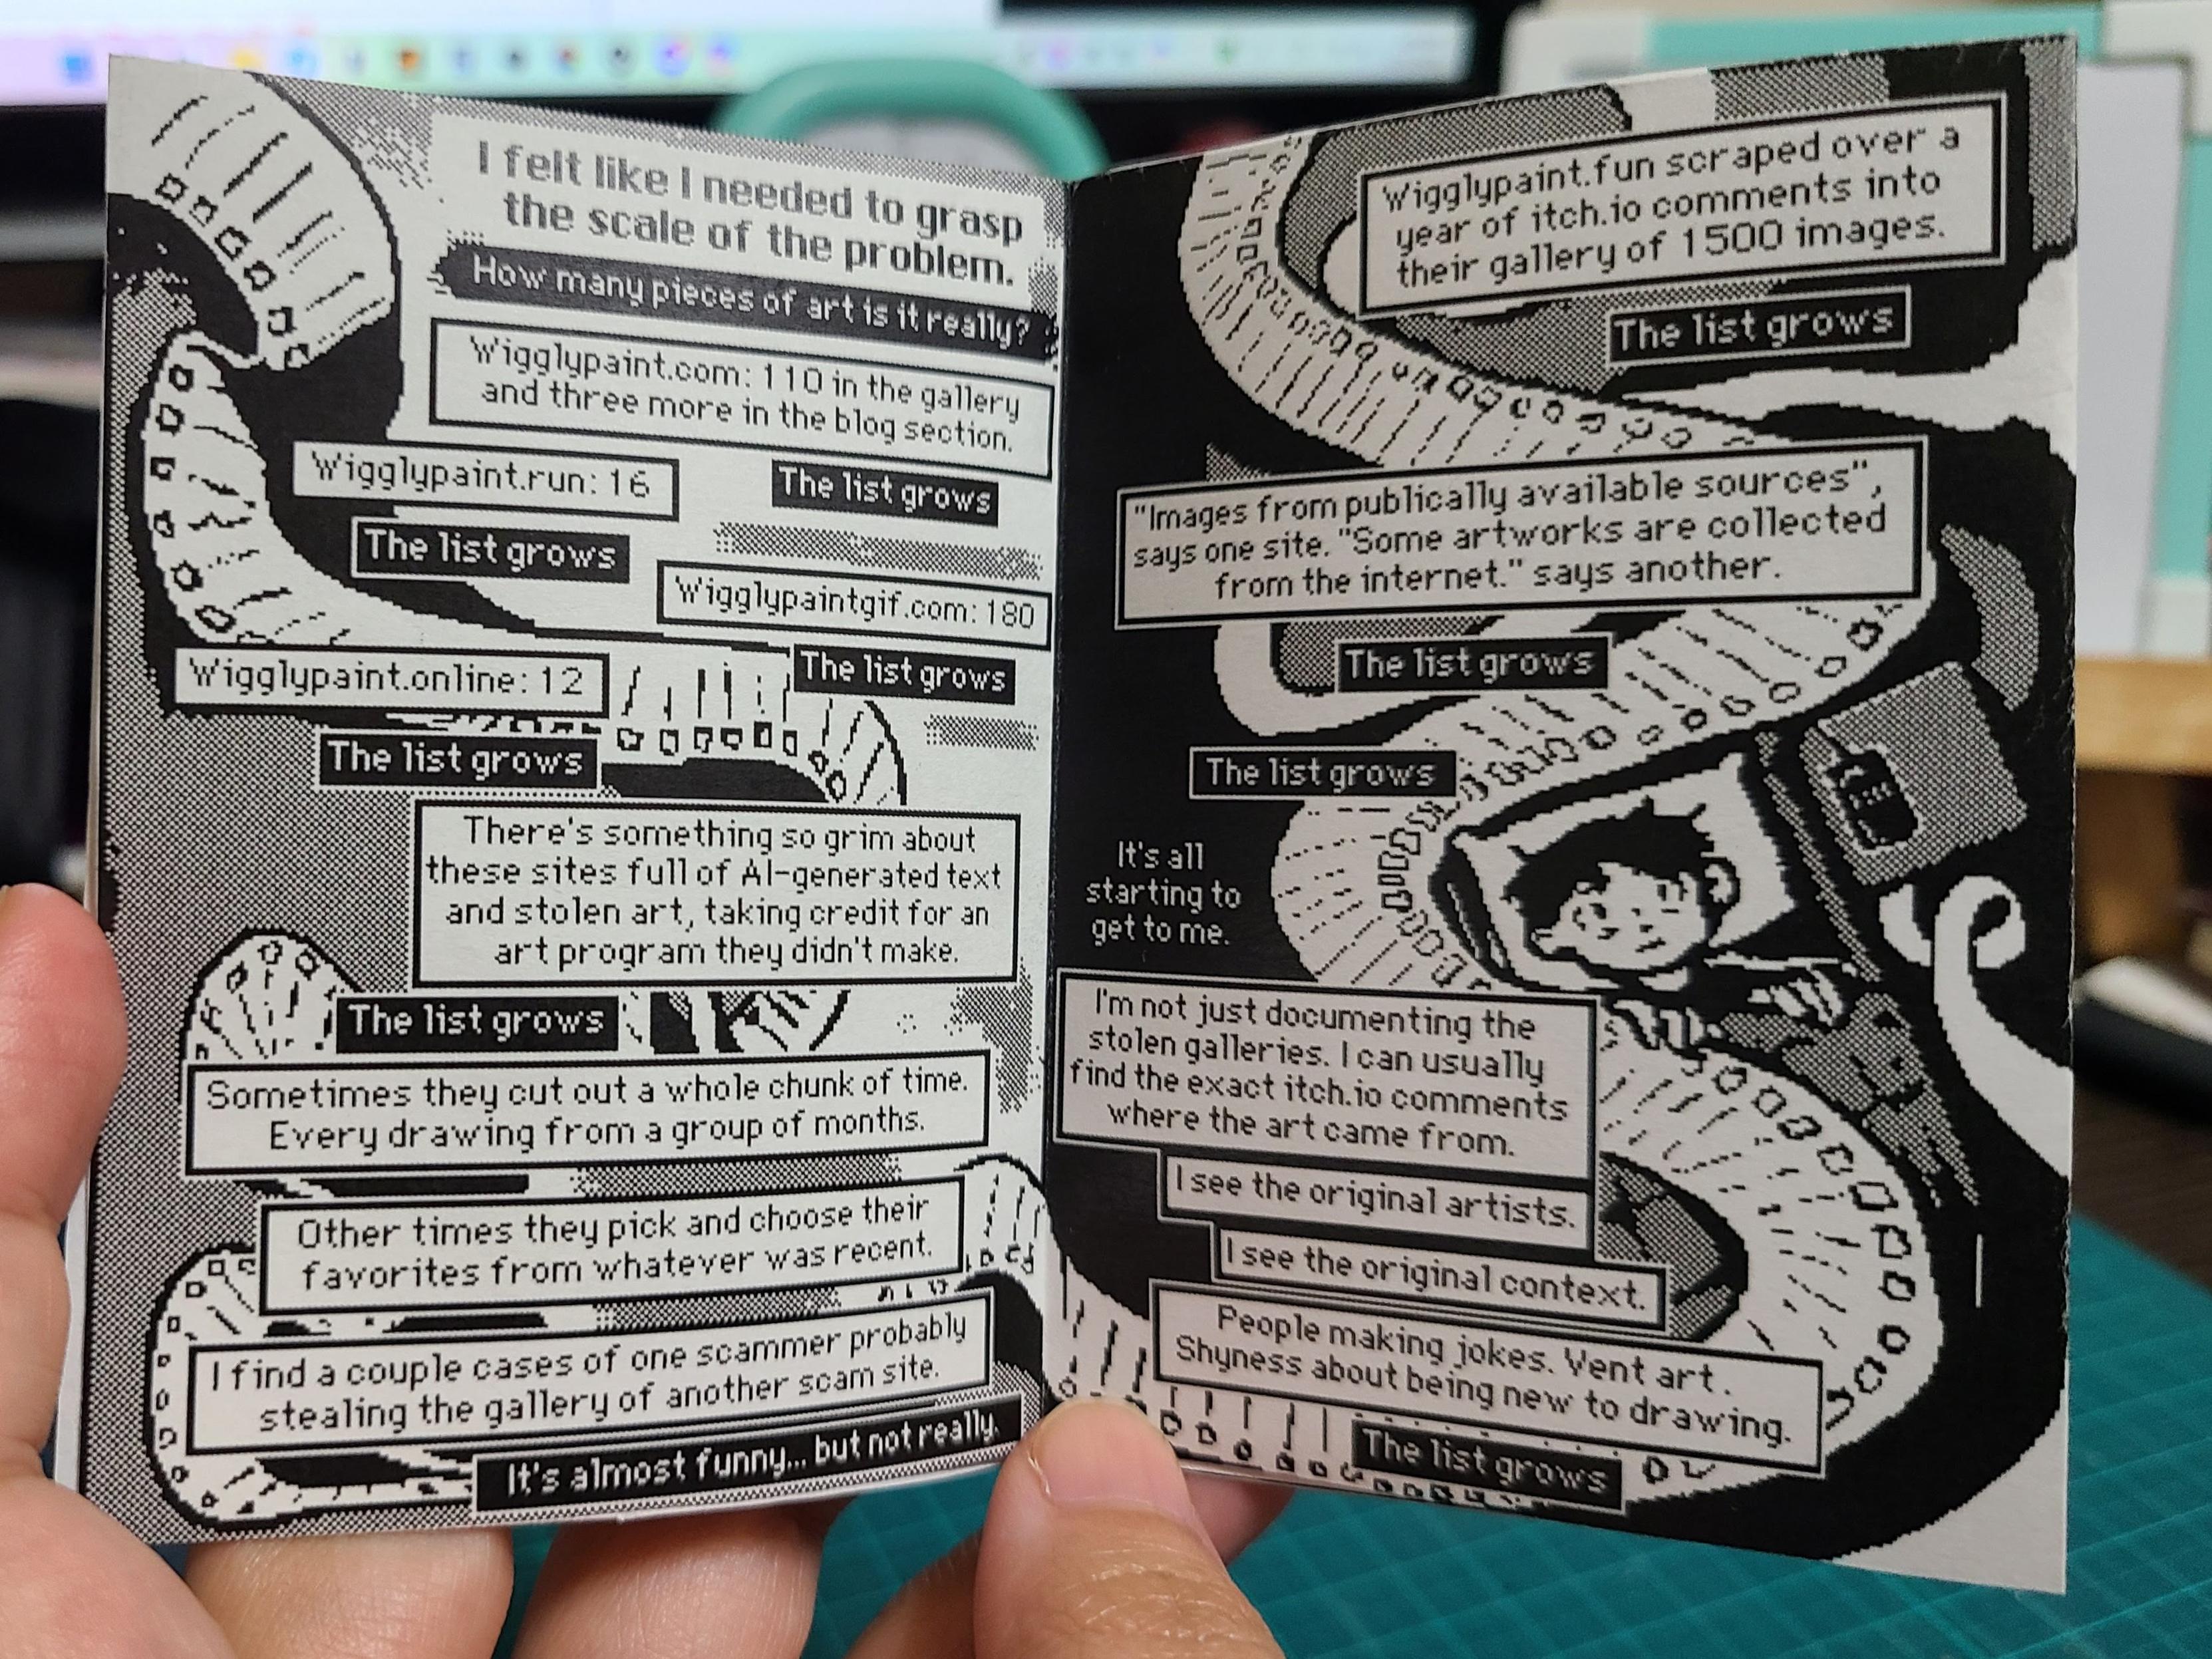 I felt like I needed to grasp
the scale of the problem.
How many pieces of art is it really?
Wigglypaint.com: 110 in the gallery
and three more in the blog section.
Wigglypaint.run: 16
The list grows
The list grows
Wigglypaintgif.com: 180
Wigglypaint.online: 12
The list grows
The list grows
There's something so grim about
these sites full of AI-generated text
and stolen art, taking credit for an
art program they didn't make.
The list grows
Sometimes they cut out a whole chunk of time.
Every drawing from a group of months.
Other times they pick and choose their
favorites from whatever was recent.
I find a couple cases of one scammer probably
stealing the gallery of another scam site.
It's almost funny... but not really.
Wigglypaint.fun scraped over a
year of itch.io comments into
their gallery of 1500 images.
The list grows
"Images from publically available sources",
says one site. "Some artworks are collected
from the internet." says another.
The list grows
The list grows
It's all
starting to
get to me.
I'm not just documenting the
stolen galleries. I can usually
find the exact itch.io comments
where the art came from.
I see the original artists.
I see the original context.
People making jokes. Vent art.
Shyness about being new to drawing.
The list grows